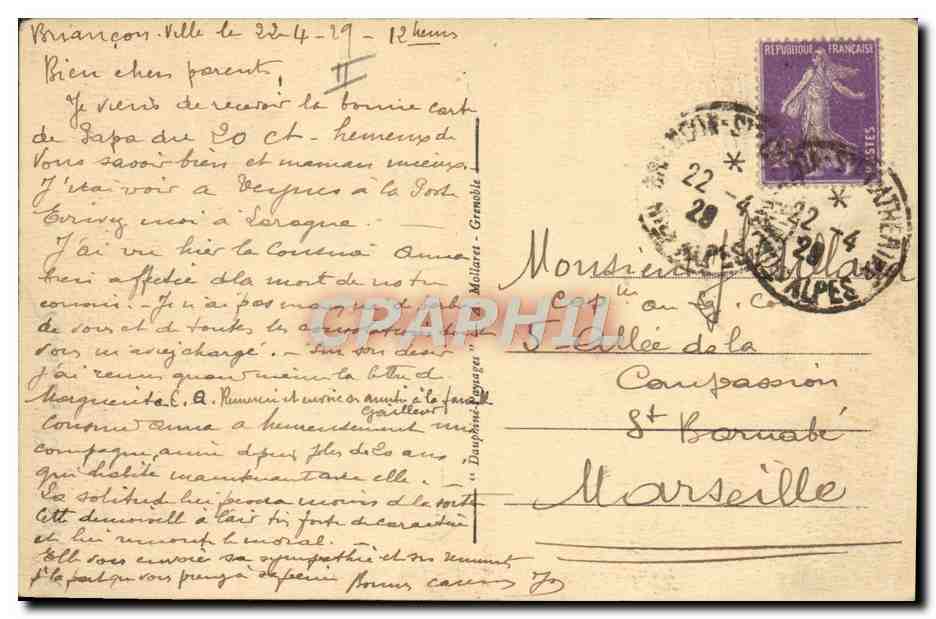 Briançon-Ville le 22-4-29 - 12 heures
II
Bien chers parents,
Je viens de recevoir la bonne carte
de Papa du 20 ct - heureux de
vous savoir bien et maman mieux.
J'irai voir à Veynes à la Poste
Ecrivez moi à Laragne.
J'ai vu hier la cousine Anna
bien affectée de la mort de notre
cousin - Je n'ai pas manqué de
de vous et de toutes les
vous m'aviez chargé. - Sur son désir
j'ai remis quand même la lettre de
Marguerite E. A. Remercier et envoie on amitié à la famille
Gailleur
Cousine Anna a heureusement une
compagne, amie depuis plus de 20 ans
qui habite maintenant avec elle. -
La solitude lui pèsera moins de la sorte
Cette demoiselle à l'air très forte de caractère
et lui remonte le moral. -
Elle vous envoie sa sympathie et ses
de la part que vous prenez à sa peine Bonnes caresses
"Dauphiné-Paysages" Mollaret - Grenoble
RÉPUBLIQUE FRANÇAISE
POSTES
BRIANÇON-STE CATHERINE
22 -4
29
HTES ALPES
22 -4
29
ALPES
Monsieur
Cap ne au g. Ca
5 Allée de la
Compassion
St Barnabé
Marseille
CPAPHIL